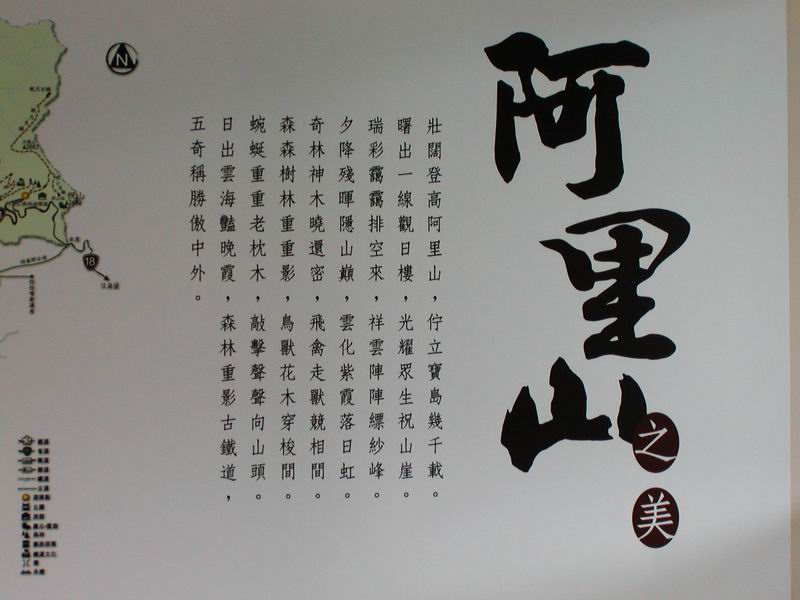 阿里山
之美
壯闊登高阿里山，佇立寶島幾千載。
曙出一線觀日樓，光耀眾生祝山崖。
瑞彩靄靄排空來，祥雲陣陣縹紗峰。
夕降殘暉隱山巔，雲化紫霞落日虹。
奇林神木曉還密，飛禽走獸競相間。
森森樹林重重影，鳥獸花木穿梭間。
蜿蜒重重老枕木，敲擊聲聲向山頭。
日出雲海豔晚霞，森林重影古鐵道，
五奇稱勝傲中外。
N
18